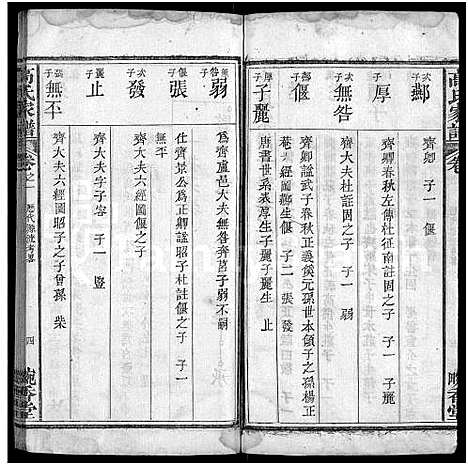 高氏家譜 卷
次子 酀
齊卿 子一 偃
子 厚
齊卿春秋左傳杜征南註固之子 子一 麗
次子 無咎
齊大夫杜註固之子 子一 弱
次子 偃
齊卿諡武子春秋正義傒元孫世本領子之孫楊正
菴六經圖酀生偃 子二 張 發
厚子 子麗
唐書世系表厚生子麗子麗生止
無咎子 弱
爲齊盧邑大夫無咎奔莒子弱不嗣
偃子 張
仕齊景公爲正卿諡昭子杜註偃之子 子一
無㔻
次子 發
齊大夫六經圖偃之子
子 止
齊大夫字子容 子一 豎
張子 無㔻
齊大夫六經圖昭子之子曾孫 柴
高氏家譜 卷之一 歷代源流考畧 四 晚香堂